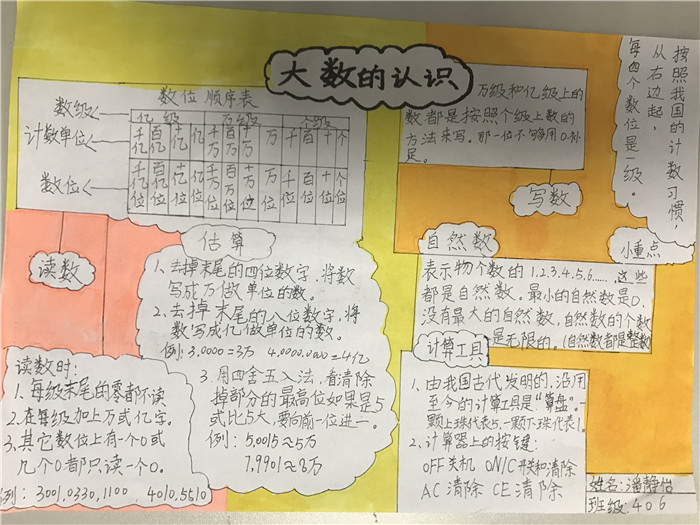 大数的认识
数位顺序表
数级
亿级 万级 个级
计数单位
千亿 百亿 十亿 亿 千万 百万 十万 万 千 百 十 个
数位
千亿位 百亿位 十亿位 亿位 千万位 百万位 十万位 万位 千位 百位 十位 个位
读数
读数时:
1、每级末尾的零都不读
2、在每级加上万或亿字。
3、其它数位上有一个0或
几个0都只读一个0。
例:3001,0330,1100 4010,5610
估算
1、去掉末尾的四位数字,将数
写成万做单位的数。
2、去掉末尾的八位数字,将
数写成亿做单位的数。
例:3,0000=3万 4,0000,0000=4亿
3、用四舍五入法,看清除
掉部分的最高位如果是5
或比5大,要向前一位进一。
例:5,0015≈5万
7,9901≈8万
万级和亿级上的
数都是按照个级上数的
方法来写。那一位不够用0补
足。
写数
按照我国的计数习惯,
从右边起,
每四个数位是一级。
小重点
自然数
表示物个数的1.2.3.4.5.6……,这些
都是自然数。最小的自然数是0.
没有最大的自然数,自然数的个数
是无限的。(自然数都是整数
计算工具
1、由我国古代发明的,沿用
至今的计算工具是“算盘”.一
颗上珠代表5.一颗下珠代表1。
2、计算器上的按键:
OFF关机 ON/C开关和清除
AC清除 CE清除
姓名:潘静怡
班级:406